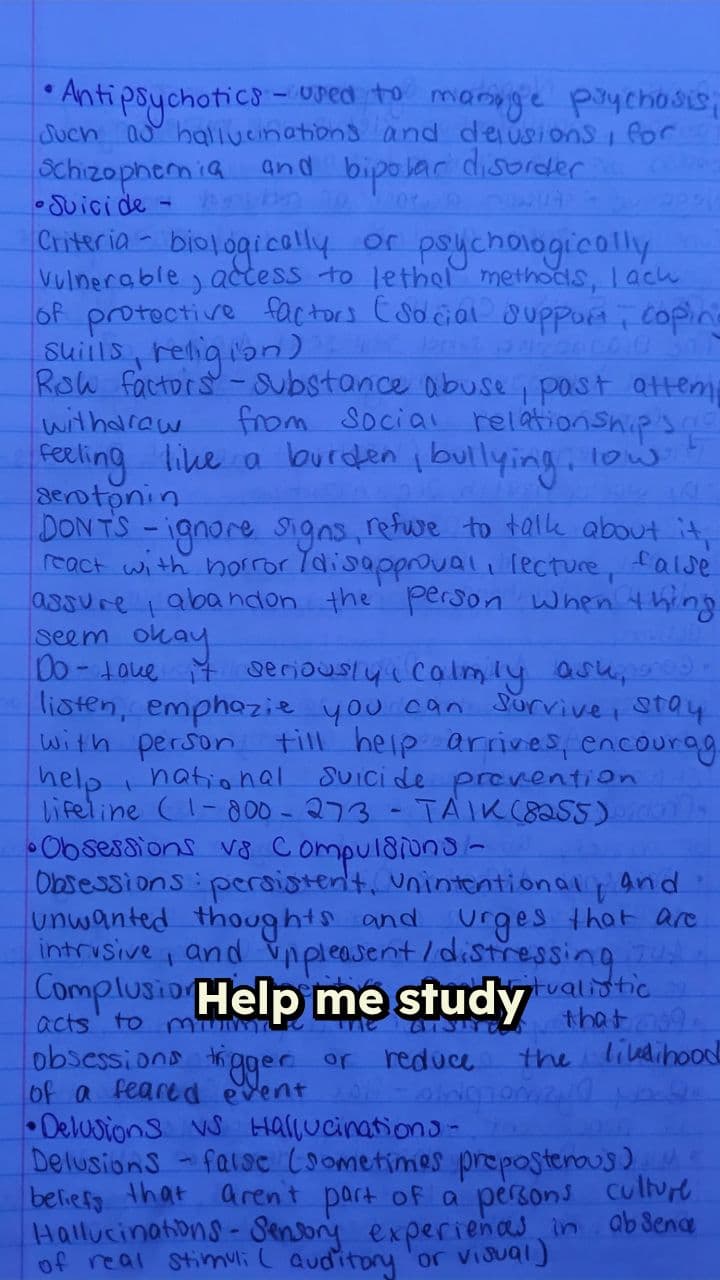 • Antipsychotics - used to manage psychosis,
such as hallucinations and delusions, for
schizophernia and bipolar disorder
• Suicide -
Criteria - biologically or psychologically
vulnerable, access to lethal methods, lack
of protective factors (social support, coping
skills, religion)
Risk factors - substance abuse, past attem
withdraw from social relationships
feeling like a burden, bullying, low
serotonin
DONTS - ignore signs, refuse to talk about it,
react with horror/disapproval, lecture, false
assure, abandon the person when thing
seem okay
Do - take it seriously, calmly ask,
listen, emphazie you can survive, stay
with person till help arrives, encourag
help, national suicide prevention
lifeline (1-800-273-TALK(8255)
• Obsessions vs Compulsions -
Obsessions: persistent, unintentional, and
unwanted thoughts and urges that are
intrusive, and unpleasent/distressing
Complusion
acts to minimize the distress that
Help me study
obsessions trigger or reduce the likelihood
of a feared event
• Delusions vs Hallucinations -
Delusions - false (sometimes preposterous)
beliefs that aren't part of a persons culture
Hallucinations - Sensory experiences in absence
of real stimuli (auditory or visual)